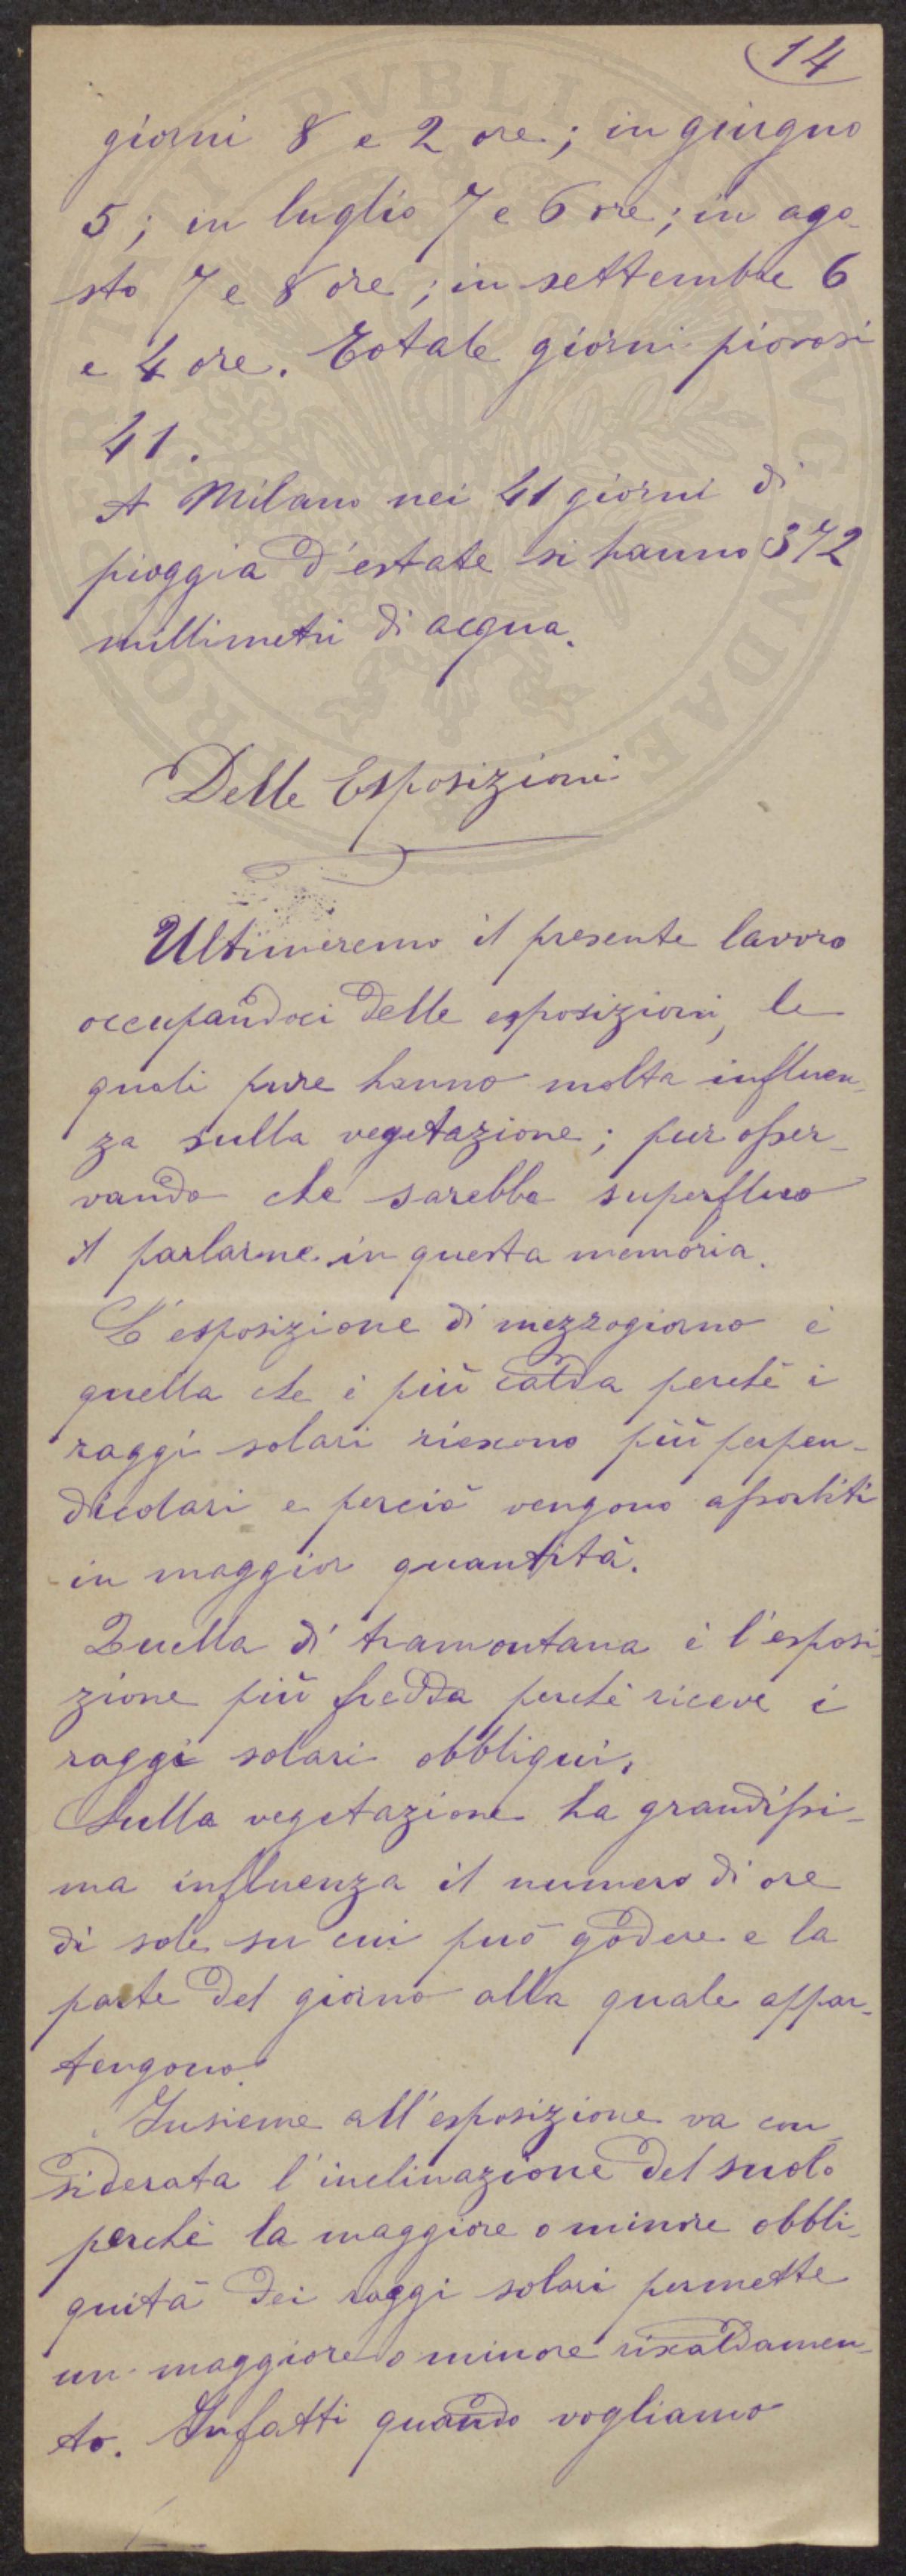 14
giorni 8 e 2 ore; in giugno
5; in luglio 7 e 6 ore; in ago-
sto 7 e 8 ore; in settembre 6
e 4 ore. Totale giorni piovosi
41.
A Milano nei 41 giorni di
pioggia d'estate si hanno 372
millimetri di acqua.
Delle Esposizioni
Ultimeremo il presente lavoro
occupandoci delle esposizioni, le
quali pure hanno molta influen-
za sulla vegetazione; pur osser-
vando che sarebbe superfluo
il parlarne in questa memoria.
L'esposizione di mezzogiorno è
quella che è più calda perchè i
raggi solari riescono più perpen-
dicolari e perciò vengono assorbiti
in maggior quantità.
Quella di tramontana è l'esposi-
zione più fredda perchè riceve i
raggi solari obbliqui.
Sulla vegetazione ha grandissi-
ma influenza il numero di ore
di sole su cui può godere e la
parte del giorno alla quale appar-
tengono.
Insieme all'esposizione va con-
siderata l'inclinazione del suolo
perchè la maggiore o minore obbli-
quità dei raggi solari permette
un maggiore o minore riscaldamen-
to. Infatti quando vogliamo